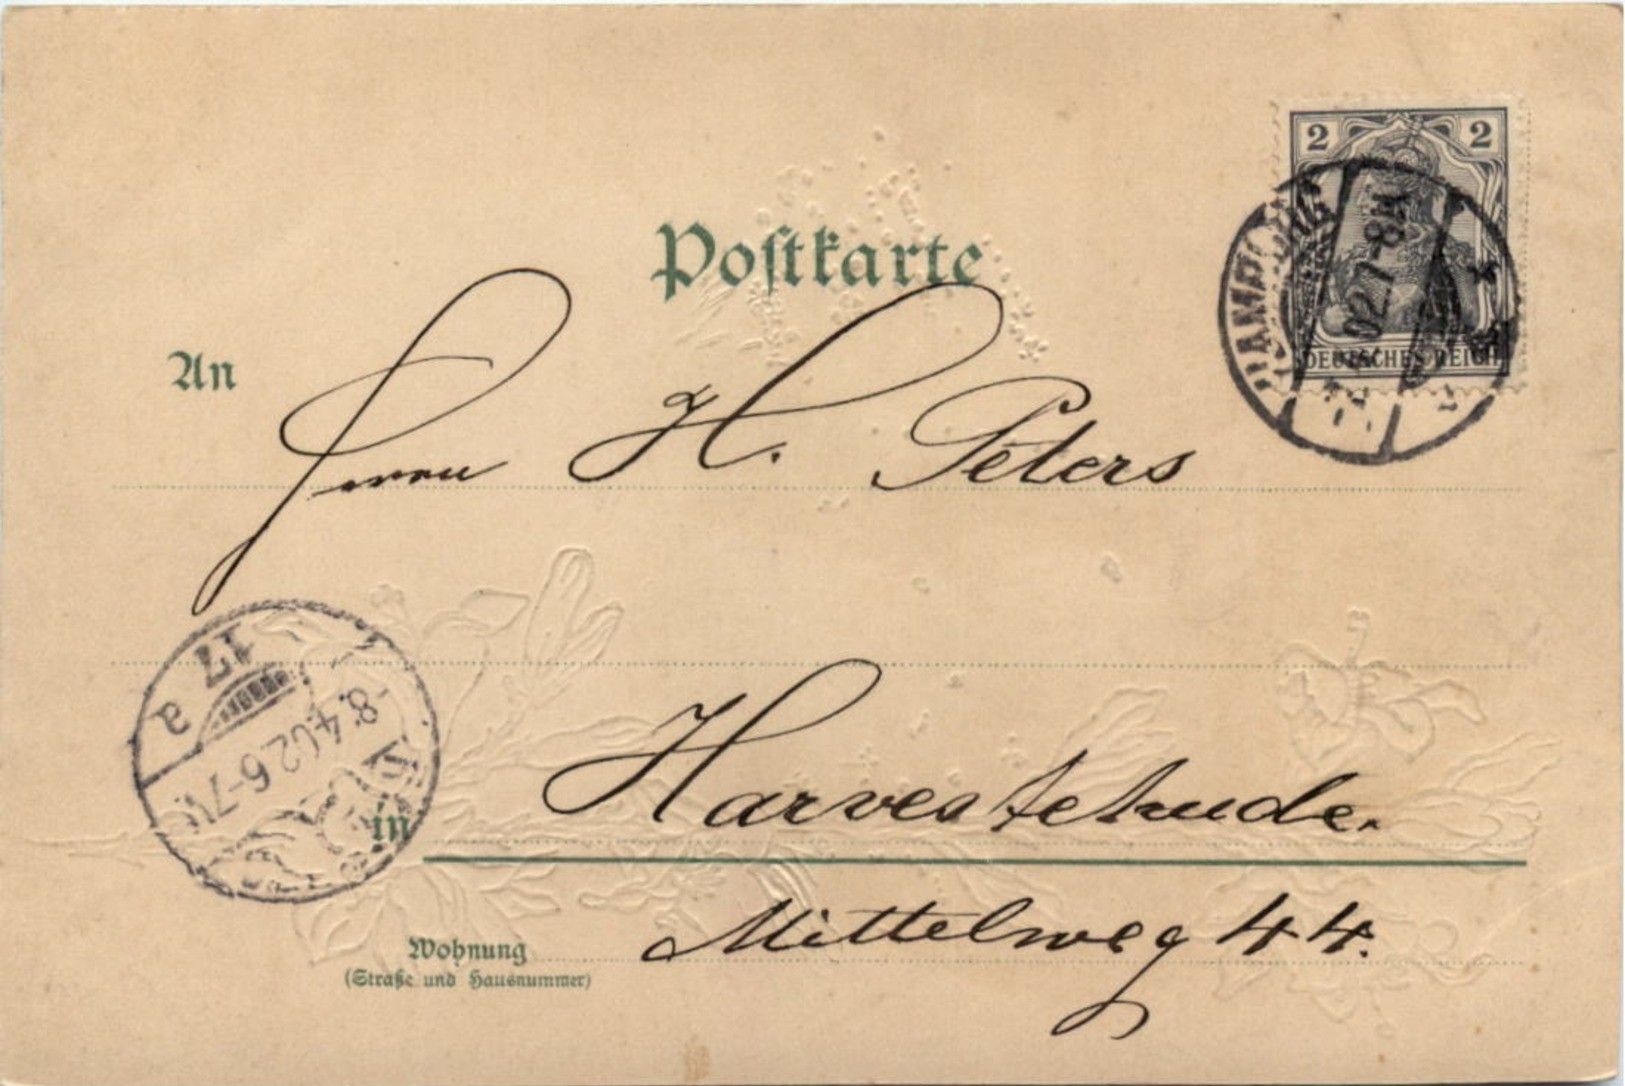 Postkarte
2 2
DEUTSCHES REICH
HAMBURG
02.7-8N
An
Herrn H. Peters
17
a
-8.4.02.6-7N
in
Harvestehude.
Mittelweg 44.
Wohnung
(Straße und Hausnummer)